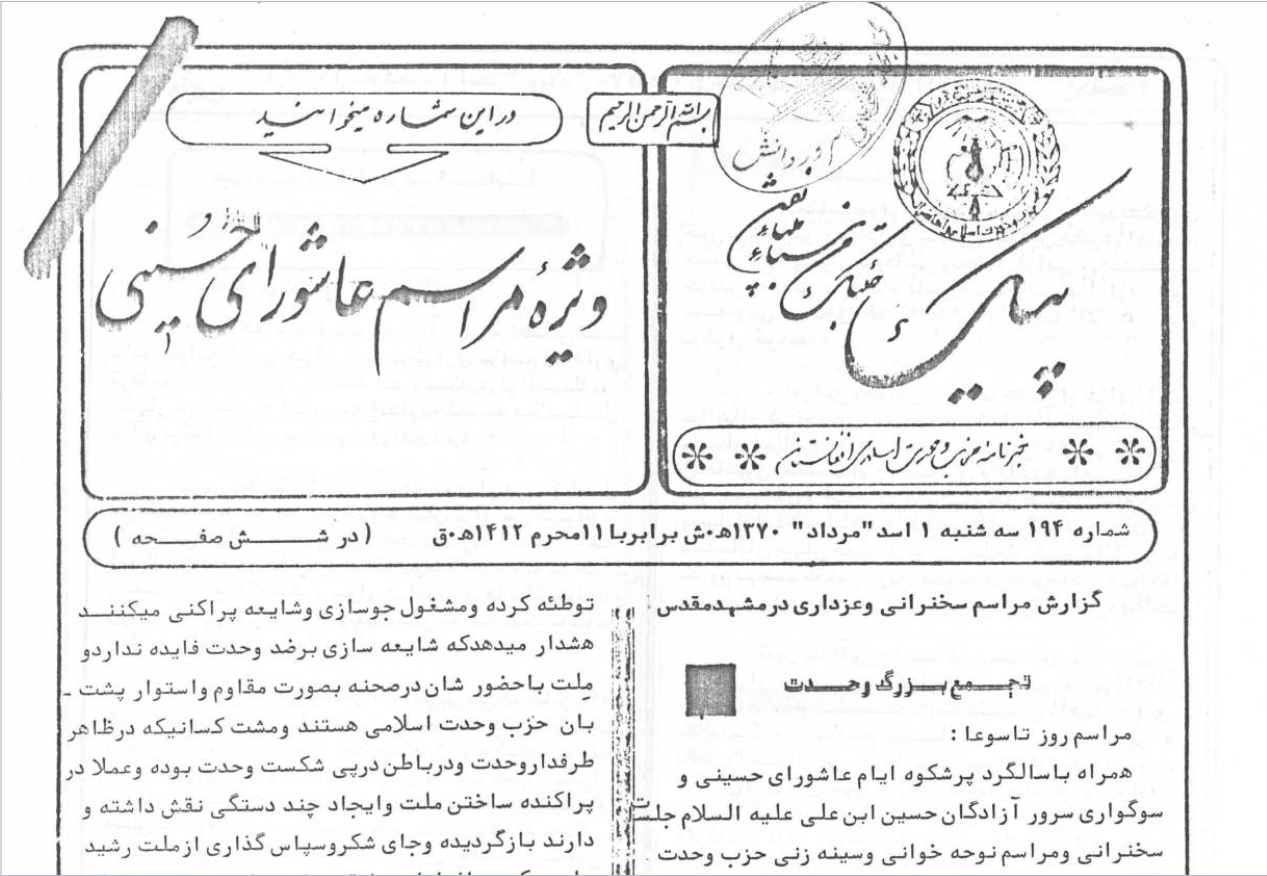 بسم الله الرحمن الرحیم
پیام
خبرنامه حزب وحدت اسلامی افغانستان
در این شماره میخوانید
ویژهٔ مراسم عاشورای حسینی
شماره ۱۹۴ سه شنبه ۱ اسد "مرداد" ۱۳۷۰هـ‌ش برابربا ۱۱محرم ۱۴۱۲هـ‌ق (در شـــش صفـــحه)
گزارش مراسم سخنرانی وعزداری درمشهدمقدس
تجـــمع بـــزرگ وحـــدت
مراسم روز تاسوعا :
همراه باسالگرد پرشکوه ایام عاشورای حسینی و
سوگواری سرور آزادگان حسین ابن علی علیه السلام
سخنرانی ومراسم نوحه خوانی وسینه زنی حزب وحدت
توطئه کرده ومشغول جوسازی وشایعه پراکنی میکننـد
هشدار میدهدکه شایعه سازی برضد وحدت فایده نداردو
ملت باحضور شان درصحنه بصورت مقاوم واستوار پشت ـ
بان حزب وحدت اسلامی هستند ومشت کسانیکه درظاهر
طرفداروحدت ودرباطن درپی شکست وحدت بوده وعملا در
پراکنده ساختن ملت وایجاد چند دستگی نقش داشته و
دارند بازگردیده وجای شکروسپاس گذاری ازملت رشید